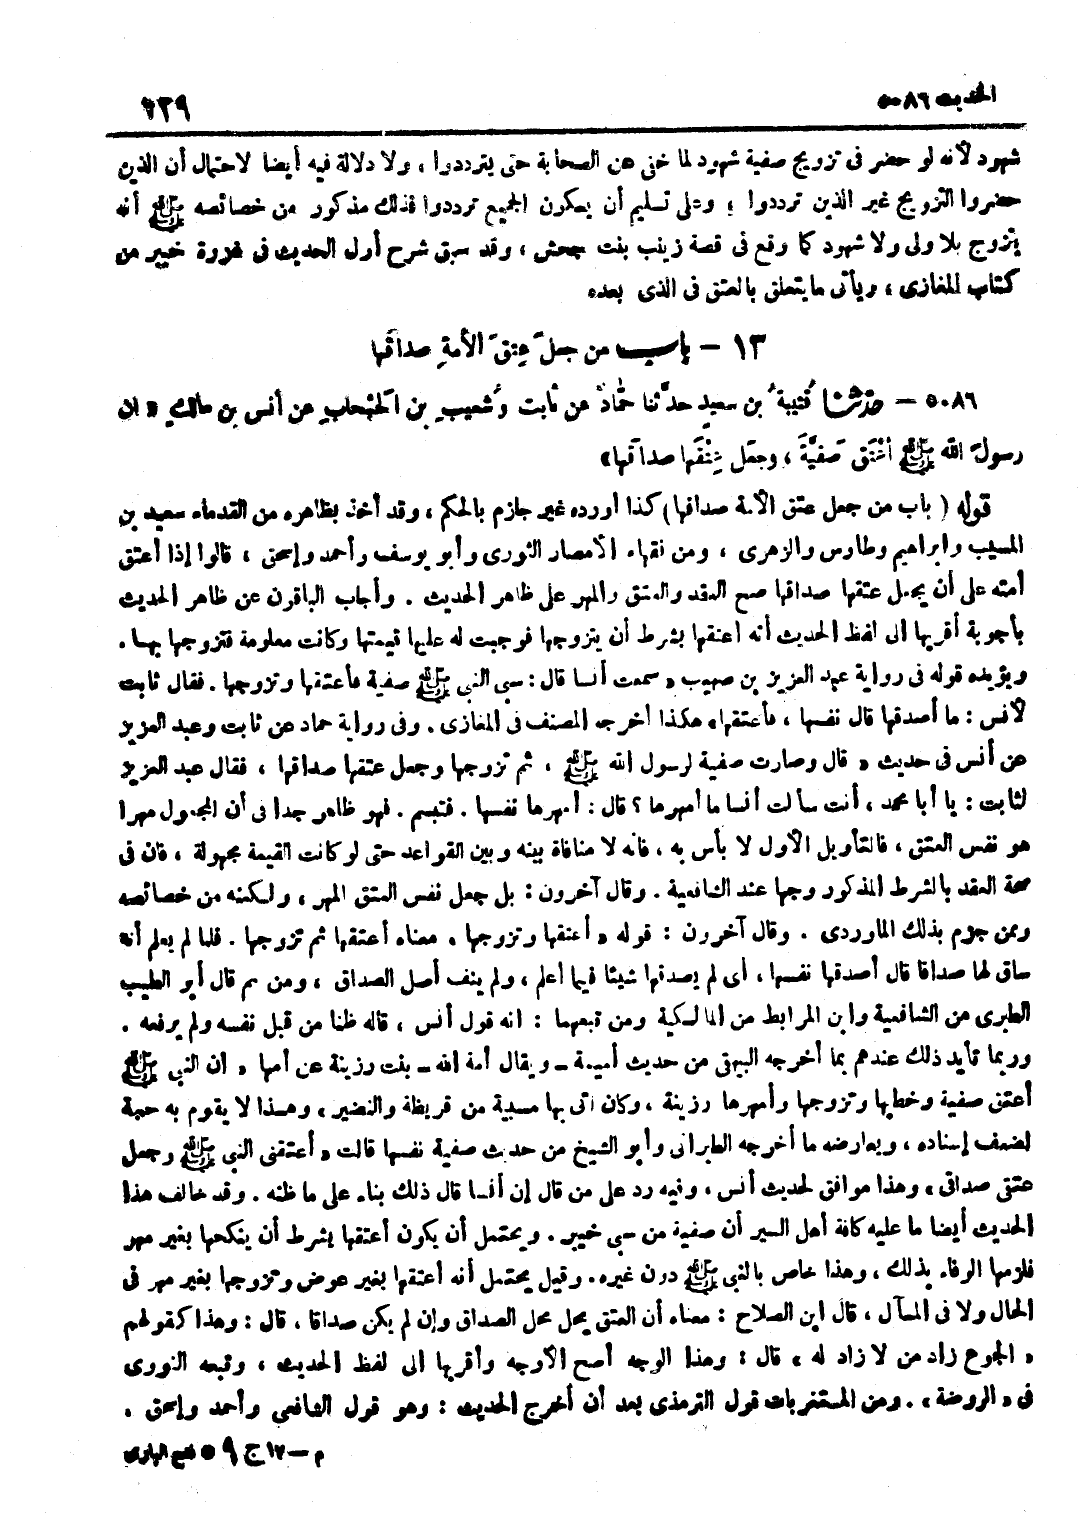 الحديث ٥٠٨٦
١٢٩
شهود لأنه لو حضر فى تزويج صفية شهود لما خفى عن الصحابة حتى يترددوا ، ولا دلالة فيه أيضا لاحتمال أن الذين
حضروا التزويج غير الذين ترددوا ؛ وعلى تسليم أن يكون الجميع ترددوا فذلك مذكور من خصائصه ﷺ أنه
يتزوج بلا ولى ولا شهود كما وقع فى قصة زينب بنت جحش ، وقد سبق شرح أول الحديث فى غزوة خيبر من
كتاب المغازى ، ويأتى ما يتعلق بالعتق فى الذى بعده
١٣ – باب من جعلَ عِتقَ الأمةِ صداقَها
٥٠٨٦ – حدثنا قُتيبةُ بن سعيدٍ حدَّثنا حمَّاد عن ثابت وشُعيبِ بن الحَبْحابِ عن أنس بن مالك « ان
رسولَ الله ﷺ أعْتَق صَفيَّةَ ، وجعَل عِتْقَها صداقَها »
قوله ( باب من جعل عتق الأمة صداقها ) كذا أورده غير جازم بالحكم ، وقد أخذ بظاهره من القدماء سعيد بن
المسيب وابراهيم وطاوس والزهرى ، ومن فقهاء الأمصار الثورى وأبو يوسف وأحمد وإسحق ، قالوا إذا أعتق
أمته على أن يجعل عتقها صداقها صح العقد والعتق والمهر على ظاهر الحديث . وأجاب الباقون عن ظاهر الحديث
بأجوبة أقربها الى لفظ الحديث أنه أعتقها بشرط أن يتزوجها فوجبت له عليها قيمتها وكانت معلومة فتزوجها بها .
ويؤيده قوله فى رواية عبد العزيز بن صهيب « سمعت أنسا قال : سبى النبى ﷺ صفية فأعتقها وتزوجها . فقال ثابت
لأنس : ما أصدقها قال نفسها ، فأعتقها» هكذا أخرجه المصنف فى المغازى . وفى رواية حماد عن ثابت وعبد العزيز
عن أنس فى حديث « قال وصارت صفية لرسول الله ﷺ ، ثم تزوجها وجعل عتقها صداقها ، فقال عبد العزيز
لثابت : يا أبا محمد ، أنت سألت أنسا ما أمهرها ؟ قال : أمهرها نفسها . فتبسم . فهو ظاهر جدا فى أن المجعول مهرا
هو نفس العتق ، فالتأويل الأول لا بأس به ، فانه لا منافاة بينه وبين القواعد حتى لو كانت القيمة مجهولة ، فان فى
صحة العقد بالشرط المذكور وجها عند الشافعية . وقال آخرون : بل جعل نفس العتق المهر ، ولكنه من خصائصه
وممن جزم بذلك الماوردى . وقال آخرون : قوله « أعتقها وتزوجها ، معناه أعتقها ثم تزوجها . فلما لم يعلم أنه
ساق لها صداقا قال أصدقها نفسها ، أى لم يصدقها شيئا فيما أعلم ، ولم ينف أصل الصداق ، ومن ثم قال أبو الطيب
الطبرى من الشافعية وابن المرابط من المالكية ومن تبعهما : انه قول أنس ، قاله ظنا من قبل نفسه ولم يرفعه .
وربما تأيد ذلك عندهم بما أخرجه البيهقى من حديث أميمة – ويقال أمة الله – بنت رزينة عن أمها « أن النبى ﷺ
أعتق صفية وخطبها وتزوجها وأمهرها رزينة ، وكان أتى بها مسبية من قريظة والنضير ، وهذا لا يقوم به حجة
لضعف إسناده ، ويعارضه ما أخرجه الطبرانى وأبو الشيخ من حديث صفية نفسها قالت « أعتقنى النبى ﷺ وجعل
عتقى صداقى » وهذا موافق لحديث أنس ، وفيه رد على من قال إن أنسا قال ذلك بناء على ما ظنه . وقد خالف هذا
الحديث أيضا ما عليه كافة أهل السير أن صفية من سبى خيبر . ويحتمل أن يكون أعتقها بشرط أن ينكحها بغير مهر
فلزمها الوفاء بذلك ، وهذا خاص بالنبى ﷺ دون غيره . وقيل يحتمل أنه أعتقها بغير عوض وتزوجها بغير مهر فى
الحال ولا فى المآل ، قال ابن الصلاح : معناه أن العتق يحل محل الصداق وإن لم يكن صداقا ، قال : وهذا كقولهم
« الجوع زاد من لا زاد له » قال : وهذا الوجه أصح الأوجه وأقربها الى لفظ الحديث ، وتبعه النووى
فى « الروضة » . ومن المستغربات قول الترمذى بعد أن أخرج الحديث : وهو قول الشافعى وأحمد وإسحق .
م – ١٧ ج ٩ ● فتح البارى